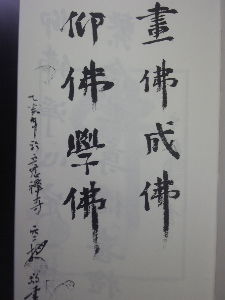 畫佛成佛
仰佛學佛
乙亥年於玄奘禪寺